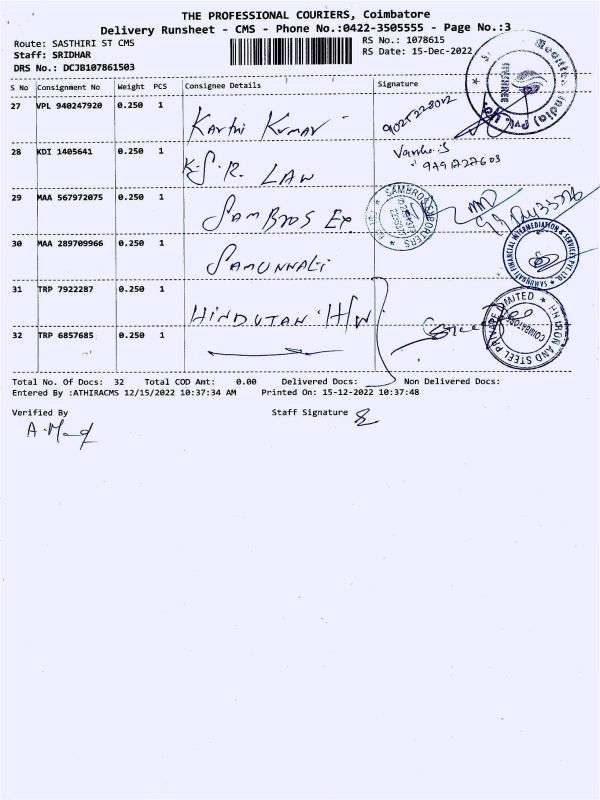 THE PROFESSIONAL COURIERS, Coimbatore
Delivery Runsheet - CMS - Phone No.:0422-3505555 - Page No.:3
Route: SASTHIRI ST CMS RS No.: 1078615
Staff: SRIDHAR RS Date: 15-Dec-2022
DRS No.: DCJB107861503
S No Consignment No Weight PCS Consignee Details Signature
27 VPL 940247920 0.250 1 Karthi Kumar
28 KDI 1405641 0.250 1 K.S.R. LAW
29 MAA 567972075 0.250 1 SAMBROS Ex.
SAMBROS EXPORTERS
30 MAA 289709966 0.250 1 SAMUNNATI
SAMUNNATI FINANCIAL INTERMEDIATION & SERVICES PVT. LTD.
31 TRP 7922287 0.250 1 HINDUTAN H/W
32 TRP 6857685 0.250 1
IRON AND STEEL PRIVATE LIMITED
COIMBATORE
Total No. Of Docs: 32 Total COD Amt: 0.00 Delivered Docs: Non Delivered Docs:
Entered By :ATHIRACMS 12/15/2022 10:37:34 AM Printed On: 15-12-2022 10:37:48
Verified By Staff Signature